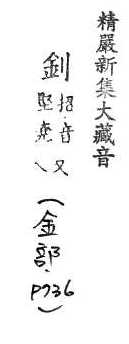 精嚴新集大藏音
釗
招音又
堅堯乀
(金部·P736)